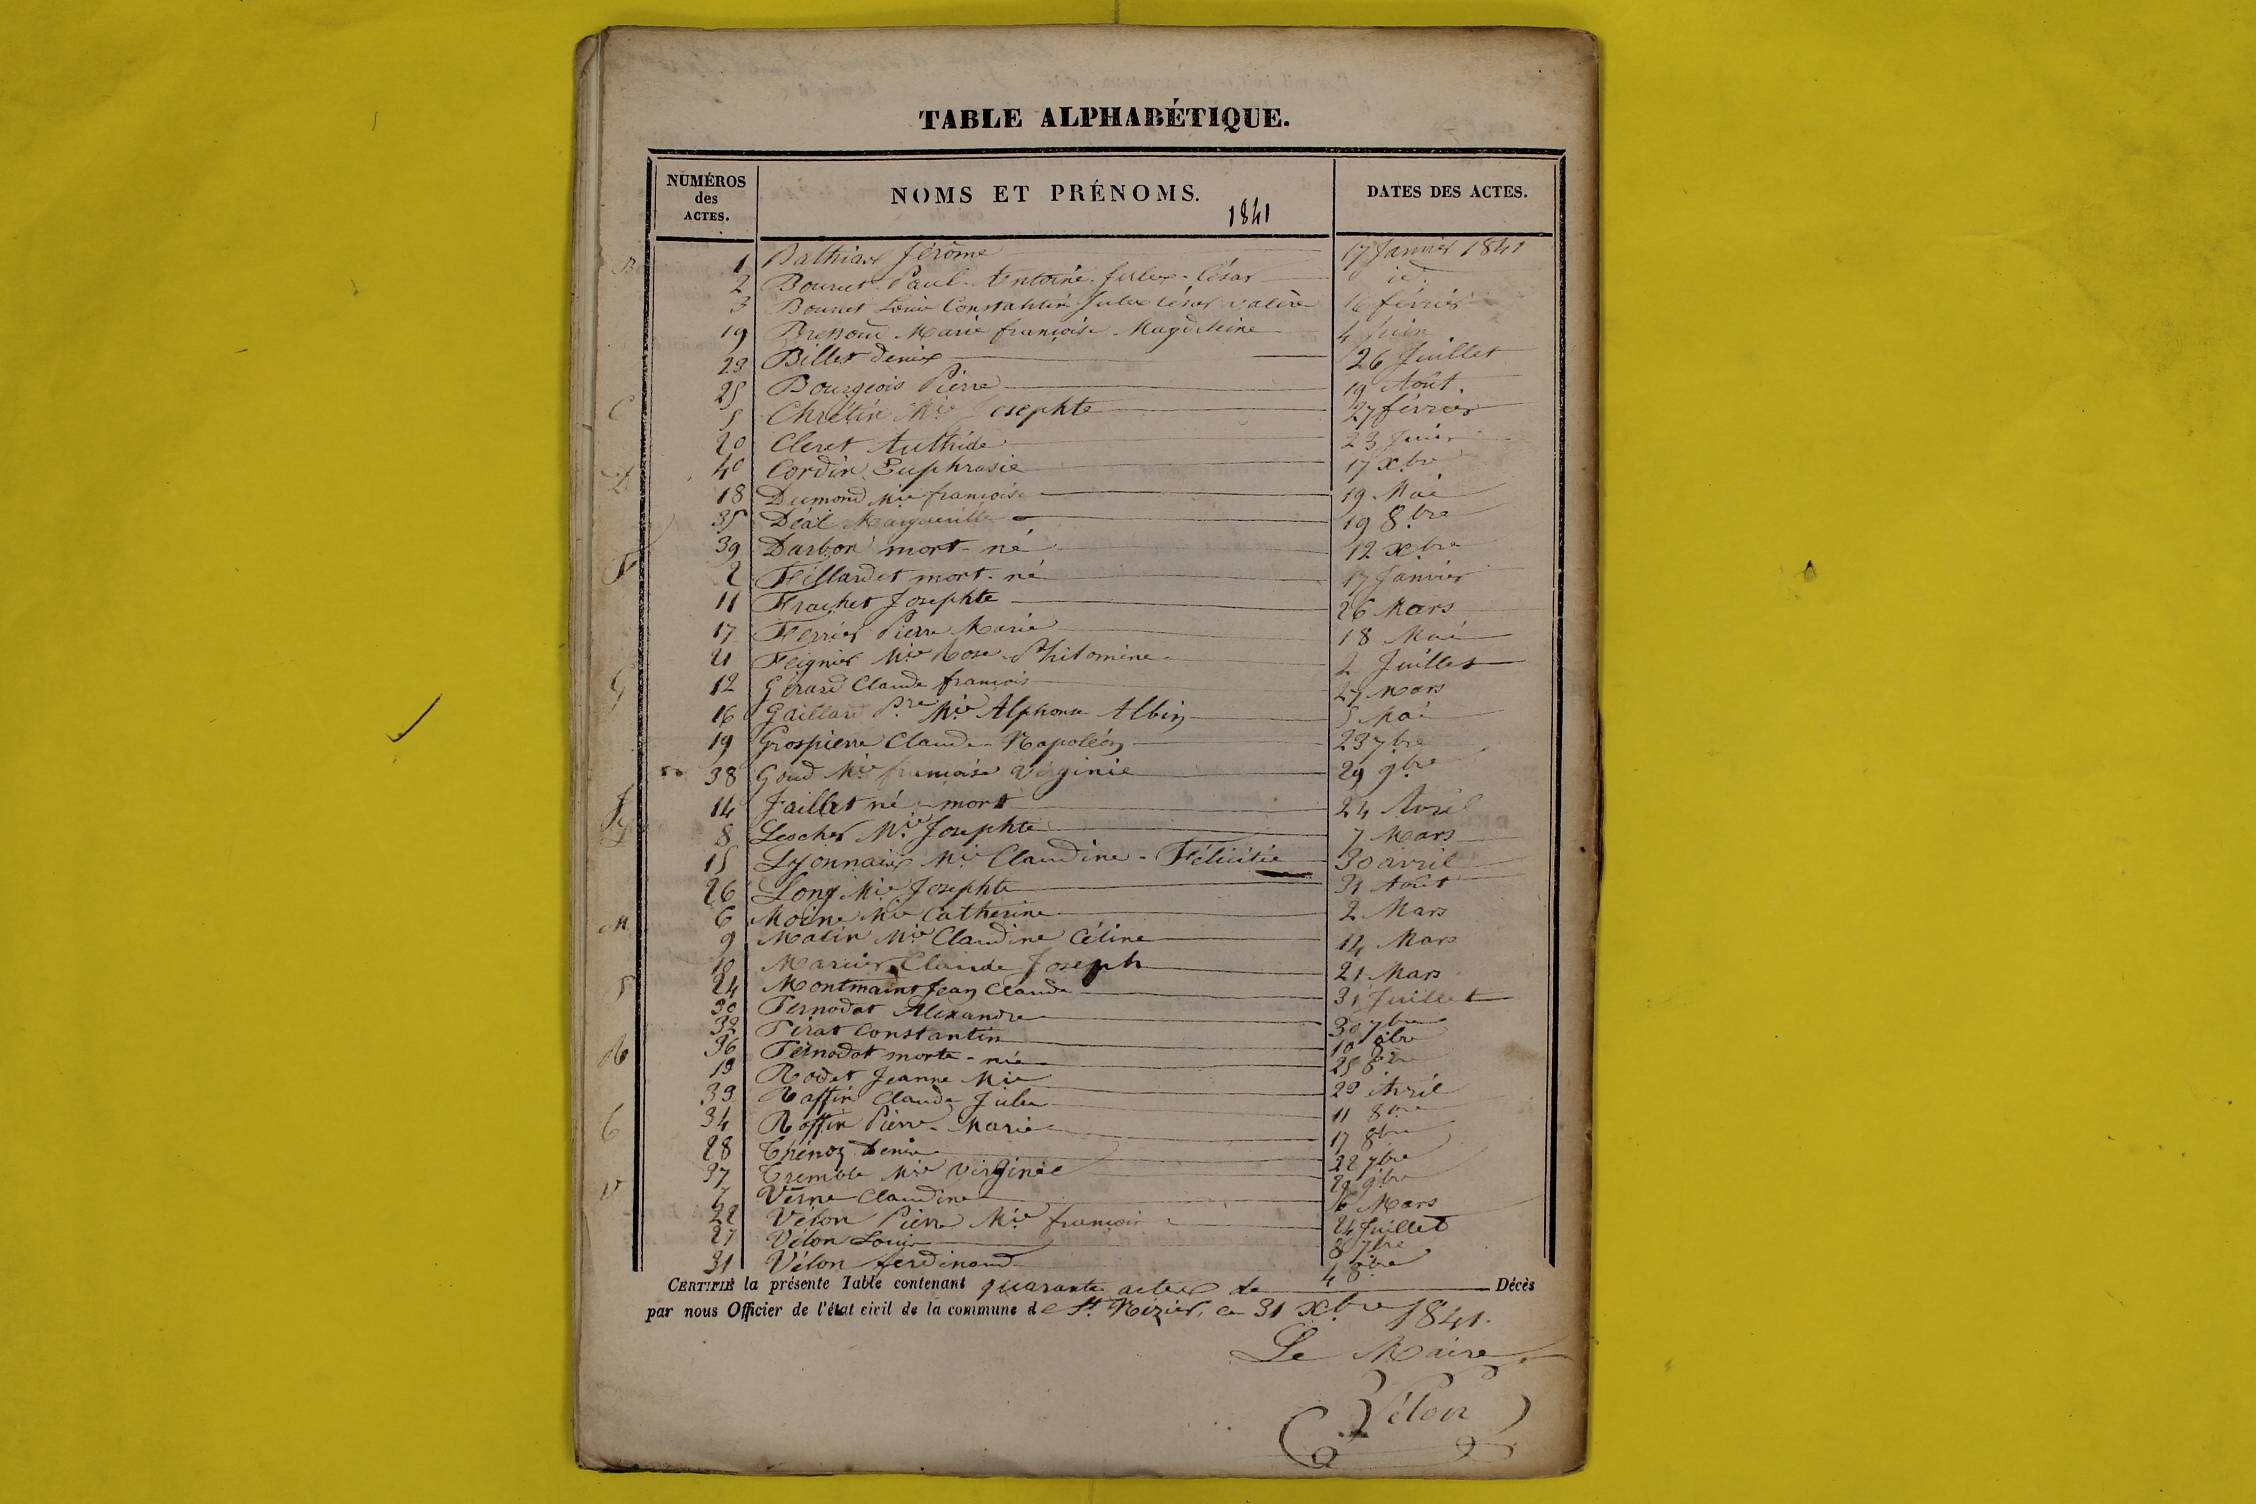 TABLE ALPHABÉTIQUE.
NUMÉROS des ACTES. NOMS ET PRÉNOMS. 1841 DATES DES ACTES.
B 1 Bathias Jérôme 17 Janvier 1841
2 Bourcet Paul Antoine César id.
3 Bourcet Constantin Jules César 16 février
19 Marie françoise Magdeleine 4 Juin
23 Billet denis 26 Juillet
25 Bourgeois Pierre 19 Août.
C 5 Chrétin Mie Josephte 27 février
20 Cleret 23 Juin
40 Cordin Euphrasie 17 xbre
D 18 Dumond Mie françoise 19 Mai
35 Déal Marguerite 19 8bre
39 Darbon mort-né 12 xbre
F 2 Fillardet mort-né 17 Janvier
11 Frachet Josephte 26 Mars
17 Ferrier Pierre Marie 18 Mai
21 Feignier Mie Rose Philomène 2 Juillet
G 12 Gérard Claude françois 27 Mars
16 Gaillard Pre Mie Alphonse Albin 5 Mai
19 Grospierre Claude Napoléon 23 7bre
38 Goud Mie françoise virginie 29 9bre
J 14 Jaillet né-mort 24 Avril
L 8 Lescher Mie Josephte 7 Mars
15 Lyonnais Mie Claudine-Félicitée 30 avril
26 Long Mie Josephte 31 Août
M 6 Moine Mie Catherine 2 Mars
9 Matin Mie Claudine Céline 14 Mars
10 Claude Joseph 21 Mars
24 Montmaint Jean Claude 31 Juillet
P 30 Pernodat Alexandre 30 7bre
32 Pirat Constantin 10 8bre
36 Pernodat morte-née 25 8bre
R 13 Rodet Jeanne Mie 23 Avril
33 Raffin Claude Jules 11 8bre
34 Raffin Pierre-Marie 17 8bre
T 28 Thénoz Denise 22 7bre
37 Tremble Mie virginie 29 9bre
V 7 Verne Claudine 6 Mars
22 Vélon Pierre Mie françois 24 Juillet
27 Vélon Louis 8 7bre
31 Vélon ferdinand 4 8bre
CERTIFIÉ la présente Table contenant quarante actes de Décès
par nous Officier de l'état civil de la commune de St. Nizier, ce 31 xbre 1841.
Le Maire
Vélon